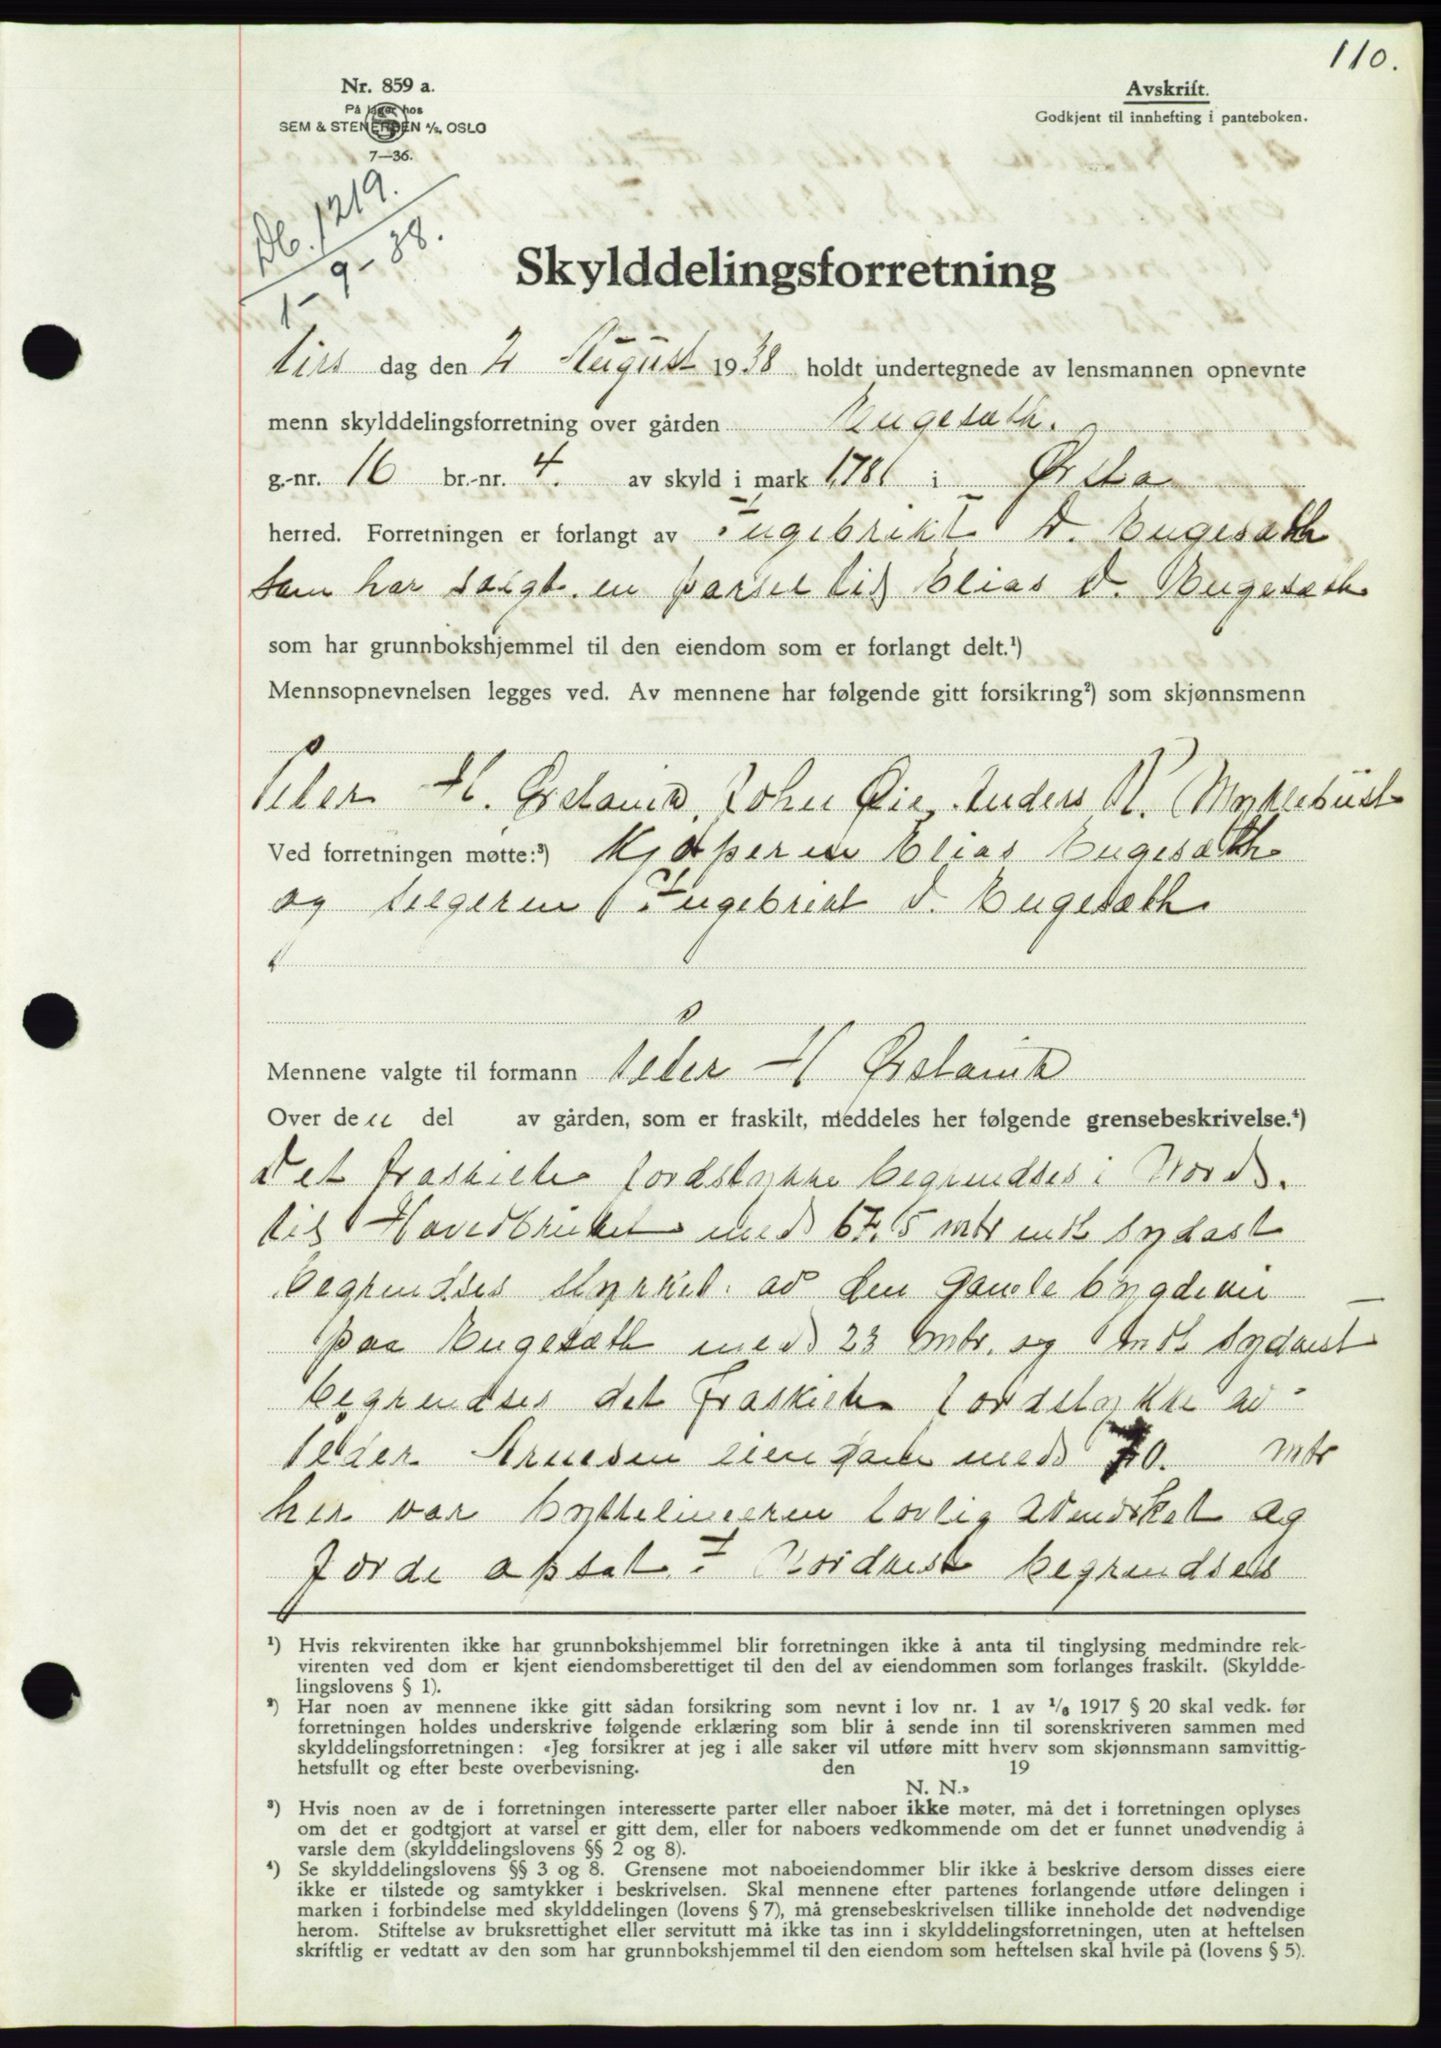 110.
Nr. 859 a.
På lager hos
SEM & STENERSEN A/S, OSLO
7—36.
Avskrift.
Godkjent til innhefting i panteboken.
Db. 1219.
1-9-38.
Skylddelingsforretning
tirs dag den 2 August 1938 holdt undertegnede av lensmannen opnevnte
menn skylddelingsforretning over gården Engesæth.
g.-nr. 16 br.-nr. 4. av skyld i mark 1,78 i Ørsta
herred. Forretningen er forlangt av Ingebrikt D. Engesæth
som har solgt en parsel til Elias D. Engesæth
som har grunnbokshjemmel til den eiendom som er forlangt delt.¹)
Mennsopnevnelsen legges ved. Av mennene har følgende gitt forsikring²) som skjønnsmenn
Peter H. Ørstavik, John Øie, Anders N. Myklebust
Ved forretningen møtte:³) Kjøperen Elias Engesæth
og selgeren Ingebrikt D. Engesæth
Mennene valgte til formann Peter H Ørstavik
Over den del av gården, som er fraskilt, meddeles her følgende grensebeskrivelse.⁴)
Det fraskilte jordstykke begrendses i Nord
til Hovedbruket med 67,5 mtr mot sydøst
begrendses stykket av den gamle bygdevei
paa Engesæth med 23 mtr. og mot sydvest
begrendses det fraskilte jordstykke av
Peder Arnesen eiendom med 70. mtr
her var byttelinjeren lovlig avmerket og
jorde opsat. I Nordvest begrendses
¹) Hvis rekvirenten ikke har grunnbokshjemmel blir forretningen ikke å anta til tinglysing medmindre rek-
virenten ved dom er kjent eiendomsberettiget til den del av eiendommen som forlanges fraskilt. (Skyldde-
lingslovens § 1).
²) Har noen av mennene ikke gitt sådan forsikring som nevnt i lov nr. 1 av ¹/₈ 1917 § 20 skal vedk. før
forretningen holdes underskrive følgende erklæring som blir å sende inn til sorenskriveren sammen med
skylddelingsforretningen: «Jeg forsikrer at jeg i alle saker vil utføre mitt hverv som skjønnsmann samvittig-
hetsfullt og efter beste overbevisning. den 19
N. N.»
³) Hvis noen av de i forretningen interesserte parter eller naboer ikke møter, må det i forretningen oplyses
om det er godtgjort at varsel er gitt dem, eller for naboers vedkommende om det er funnet unødvendig å
varsle dem (skylddelingslovens §§ 2 og 8).
⁴) Se skylddelingslovens §§ 3 og 8. Grensene mot naboeiendommer blir ikke å beskrive dersom disses eiere
ikke er tilstede og samtykker i beskrivelsen. Skal mennene efter partenes forlangende utføre delingen i
marken i forbindelse med skylddelingen (lovens § 7), må grensebeskrivelsen tillike inneholde det nødvendige
herom. Stiftelse av bruksrettighet eller servitutt må ikke tas inn i skylddelingsforretningen, uten at heftelsen
skriftlig er vedtatt av den som har grunnbokshjemmel til den eiendom som heftelsen skal hvile på (lovens § 5).